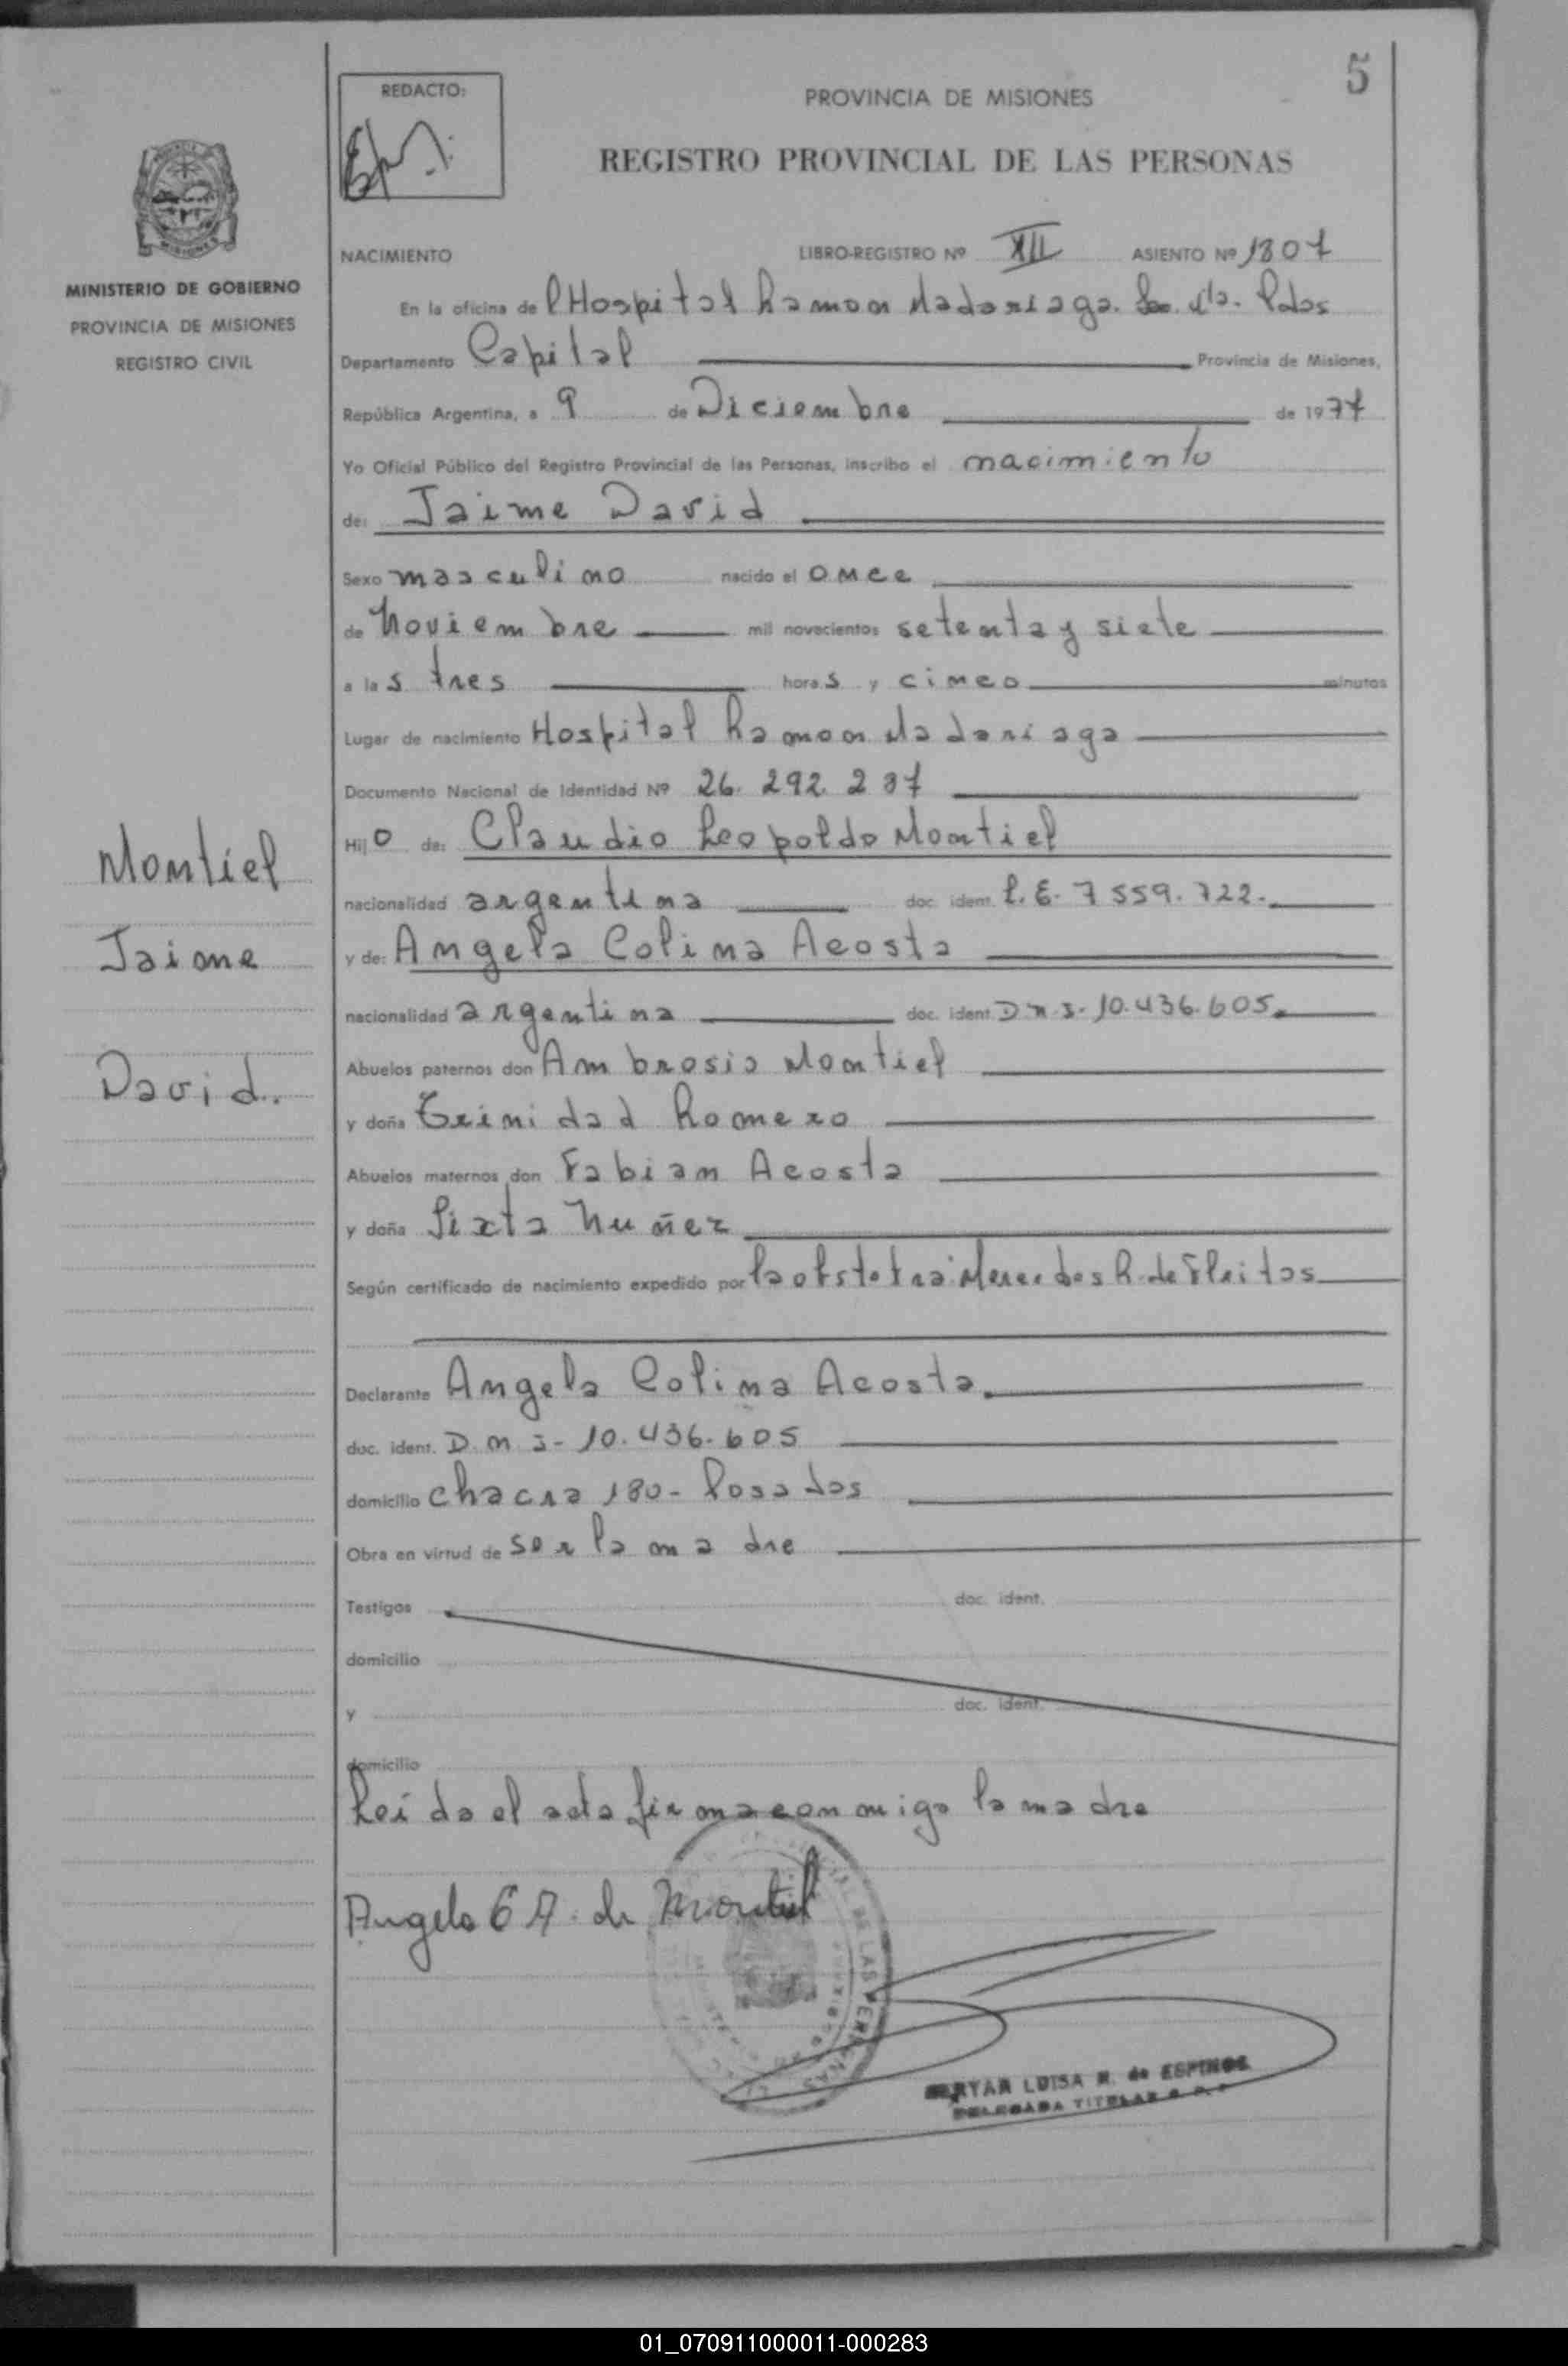 5
REDACTO:
PROVINCIA DE MISIONES
REGISTRO PROVINCIAL DE LAS PERSONAS
MINISTERIO DE GOBIERNO
PROVINCIA DE MISIONES
REGISTRO CIVIL
NACIMIENTO LIBRO-REGISTRO Nº XII ASIENTO Nº 1807
En la oficina de l Hospital Ramon Madariaga. Pdas
Departamento Capital Provincia de Misiones,
República Argentina, a 9 de Diciembre de 1977
Yo Oficial Público del Registro Provincial de las Personas, inscribo el nacimiento
de: Jaime David
Sexo masculino nacido el once
de Noviembre mil novecientos setenta y siete
a las tres horas y cinco minutos
Lugar de nacimiento Hospital Ramon Madariaga
Documento Nacional de Identidad Nº 26.292.237
Hijo de: Claudio Leopoldo Montiel
nacionalidad argentina doc. ident. L.E. 7559.722.
y de: Angela Colina Acosta
nacionalidad argentina doc. ident. D n i- 10.436.605.
Abuelos paternos don Ambrosio Montiel
y doña Trinidad Romero
Abuelos maternos don Fabian Acosta
y doña Sixta Nuñez
Según certificado de nacimiento expedido por la obstetra Mercedes R. de Fleitas
Declarante Angela Colina Acosta.
doc. ident. D n i- 10.436.605
domicilio chacra 180- Posadas
Obra en virtud de ser la madre
Testigos doc. ident.
domicilio
y doc. ident.
domicilio
Leida el acta firma conmigo la madre
Angela C A. de Montiel
LUISA R. de ESPINOS
DELEGADA TITULAR
Montiel
Jaime
David.
01_070911000011-000283